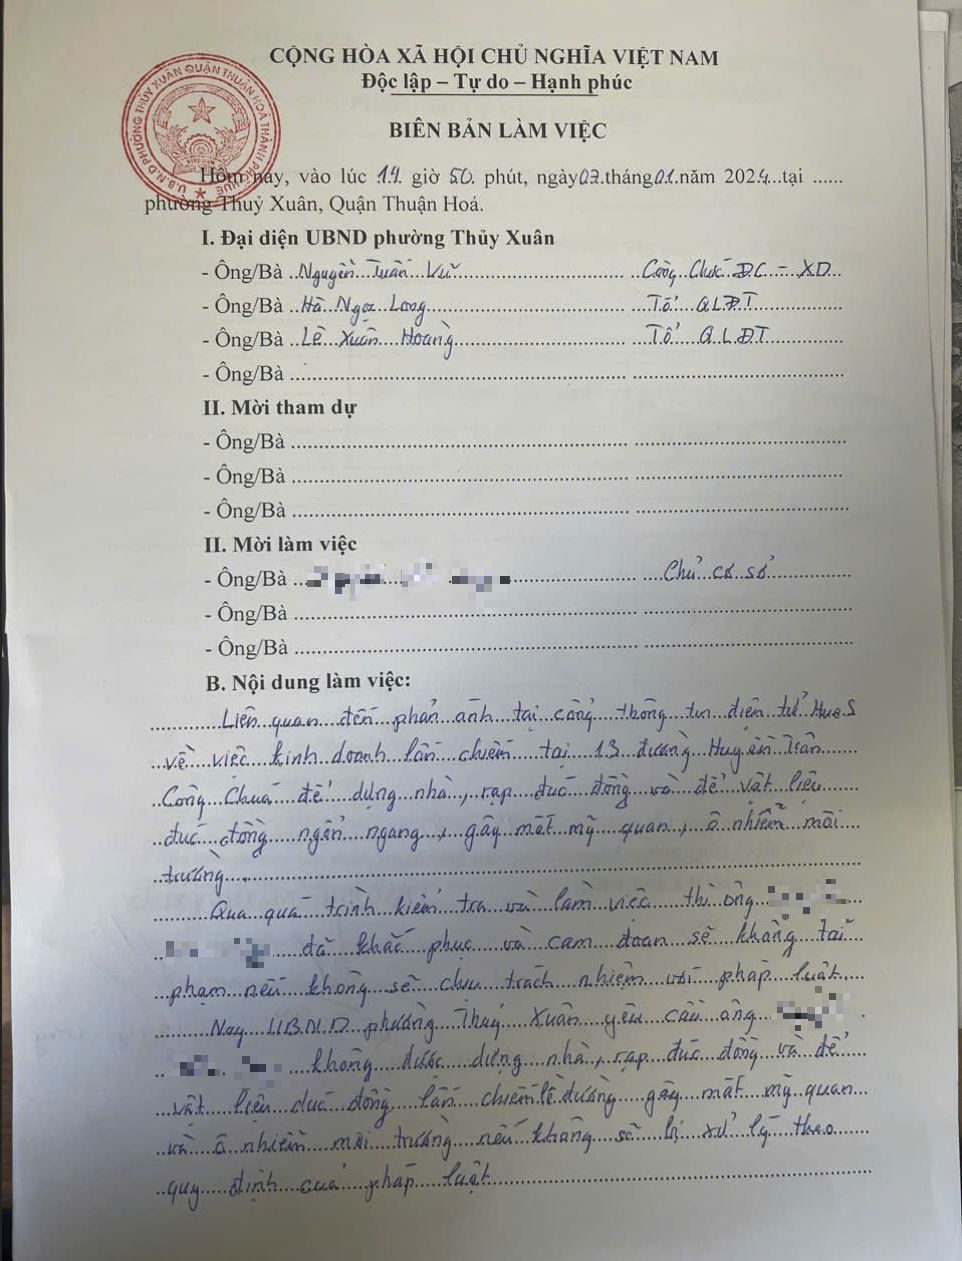 CỘNG HÒA XÃ HỘI CHỦ NGHĨA VIỆT NAM
Độc lập – Tự do – Hạnh phúc
BIÊN BẢN LÀM VIỆC
U.B.N.D PHƯỜNG THỦY XUÂN QUẬN THUẬN HOÁ THÀNH PHỐ HUẾ
Hôm nay, vào lúc 14 giờ 50 phút, ngày 07 tháng 01 năm 2024 tại ......
phường Thuỷ Xuân, Quận Thuận Hoá.
I. Đại diện UBND phường Thủy Xuân
- Ông/Bà Nguyễn Tuấn Vũ Công Chức ĐC - XD
- Ông/Bà Hà Ngọc Long Tổ QLĐT
- Ông/Bà Lê Xuân Hoàng Tổ QLĐT
- Ông/Bà
II. Mời tham dự
- Ông/Bà
- Ông/Bà
- Ông/Bà
II. Mời làm việc
- Ông/Bà Chủ cơ sở
- Ông/Bà
- Ông/Bà
B. Nội dung làm việc:
Liên quan đến phản ánh tại cổng thông tin điện tử Hue.S
về việc kinh doanh lấn chiếm tại 13 đường Huyền Trân
Công Chúa để dựng nhà, rạp đúc đồng và để vật liệu
đúc đồng ngổn ngang, gây mất mỹ quan, ô nhiễm môi
trường.
Qua quá trình kiểm tra và làm việc thì ông
đã khắc phục và cam đoan sẽ không tái
phạm nếu không sẽ chịu trách nhiệm với pháp luật
Nay U.B.N.D phường Thuỷ Xuân yêu cầu ông
không được dựng nhà, rạp đúc đồng và để
vật liệu đúc đồng lấn chiếm lề đường gây mất mỹ quan
và ô nhiễm môi trường nếu không sẽ bị xử lý theo
quy định của pháp luật